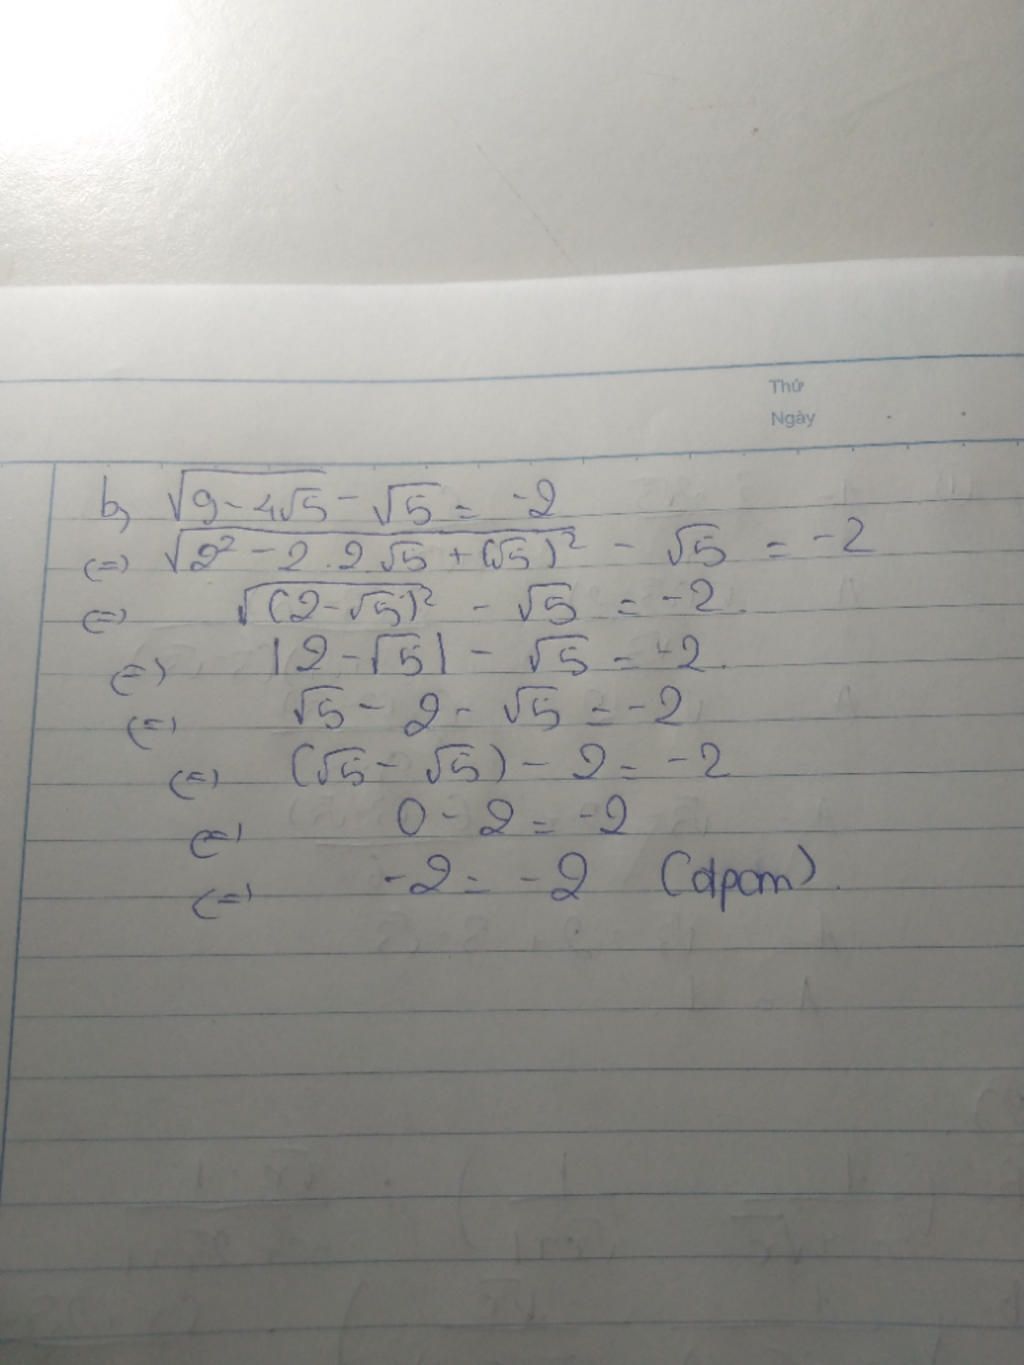 Thứ
Ngày
b, √(9 - 4√5) - √5 = -2
(=) √(2² - 2.2√5 + (√5)²) - √5 = -2
(=) √((2 - √5)²) - √5 = -2.
(=) |2 - √5| - √5 = -2.
(=) √5 - 2 - √5 = -2
(=) (√5 - √5) - 2 = -2
(=) 0 - 2 = -2
(=) -2 = -2 (đpcm).